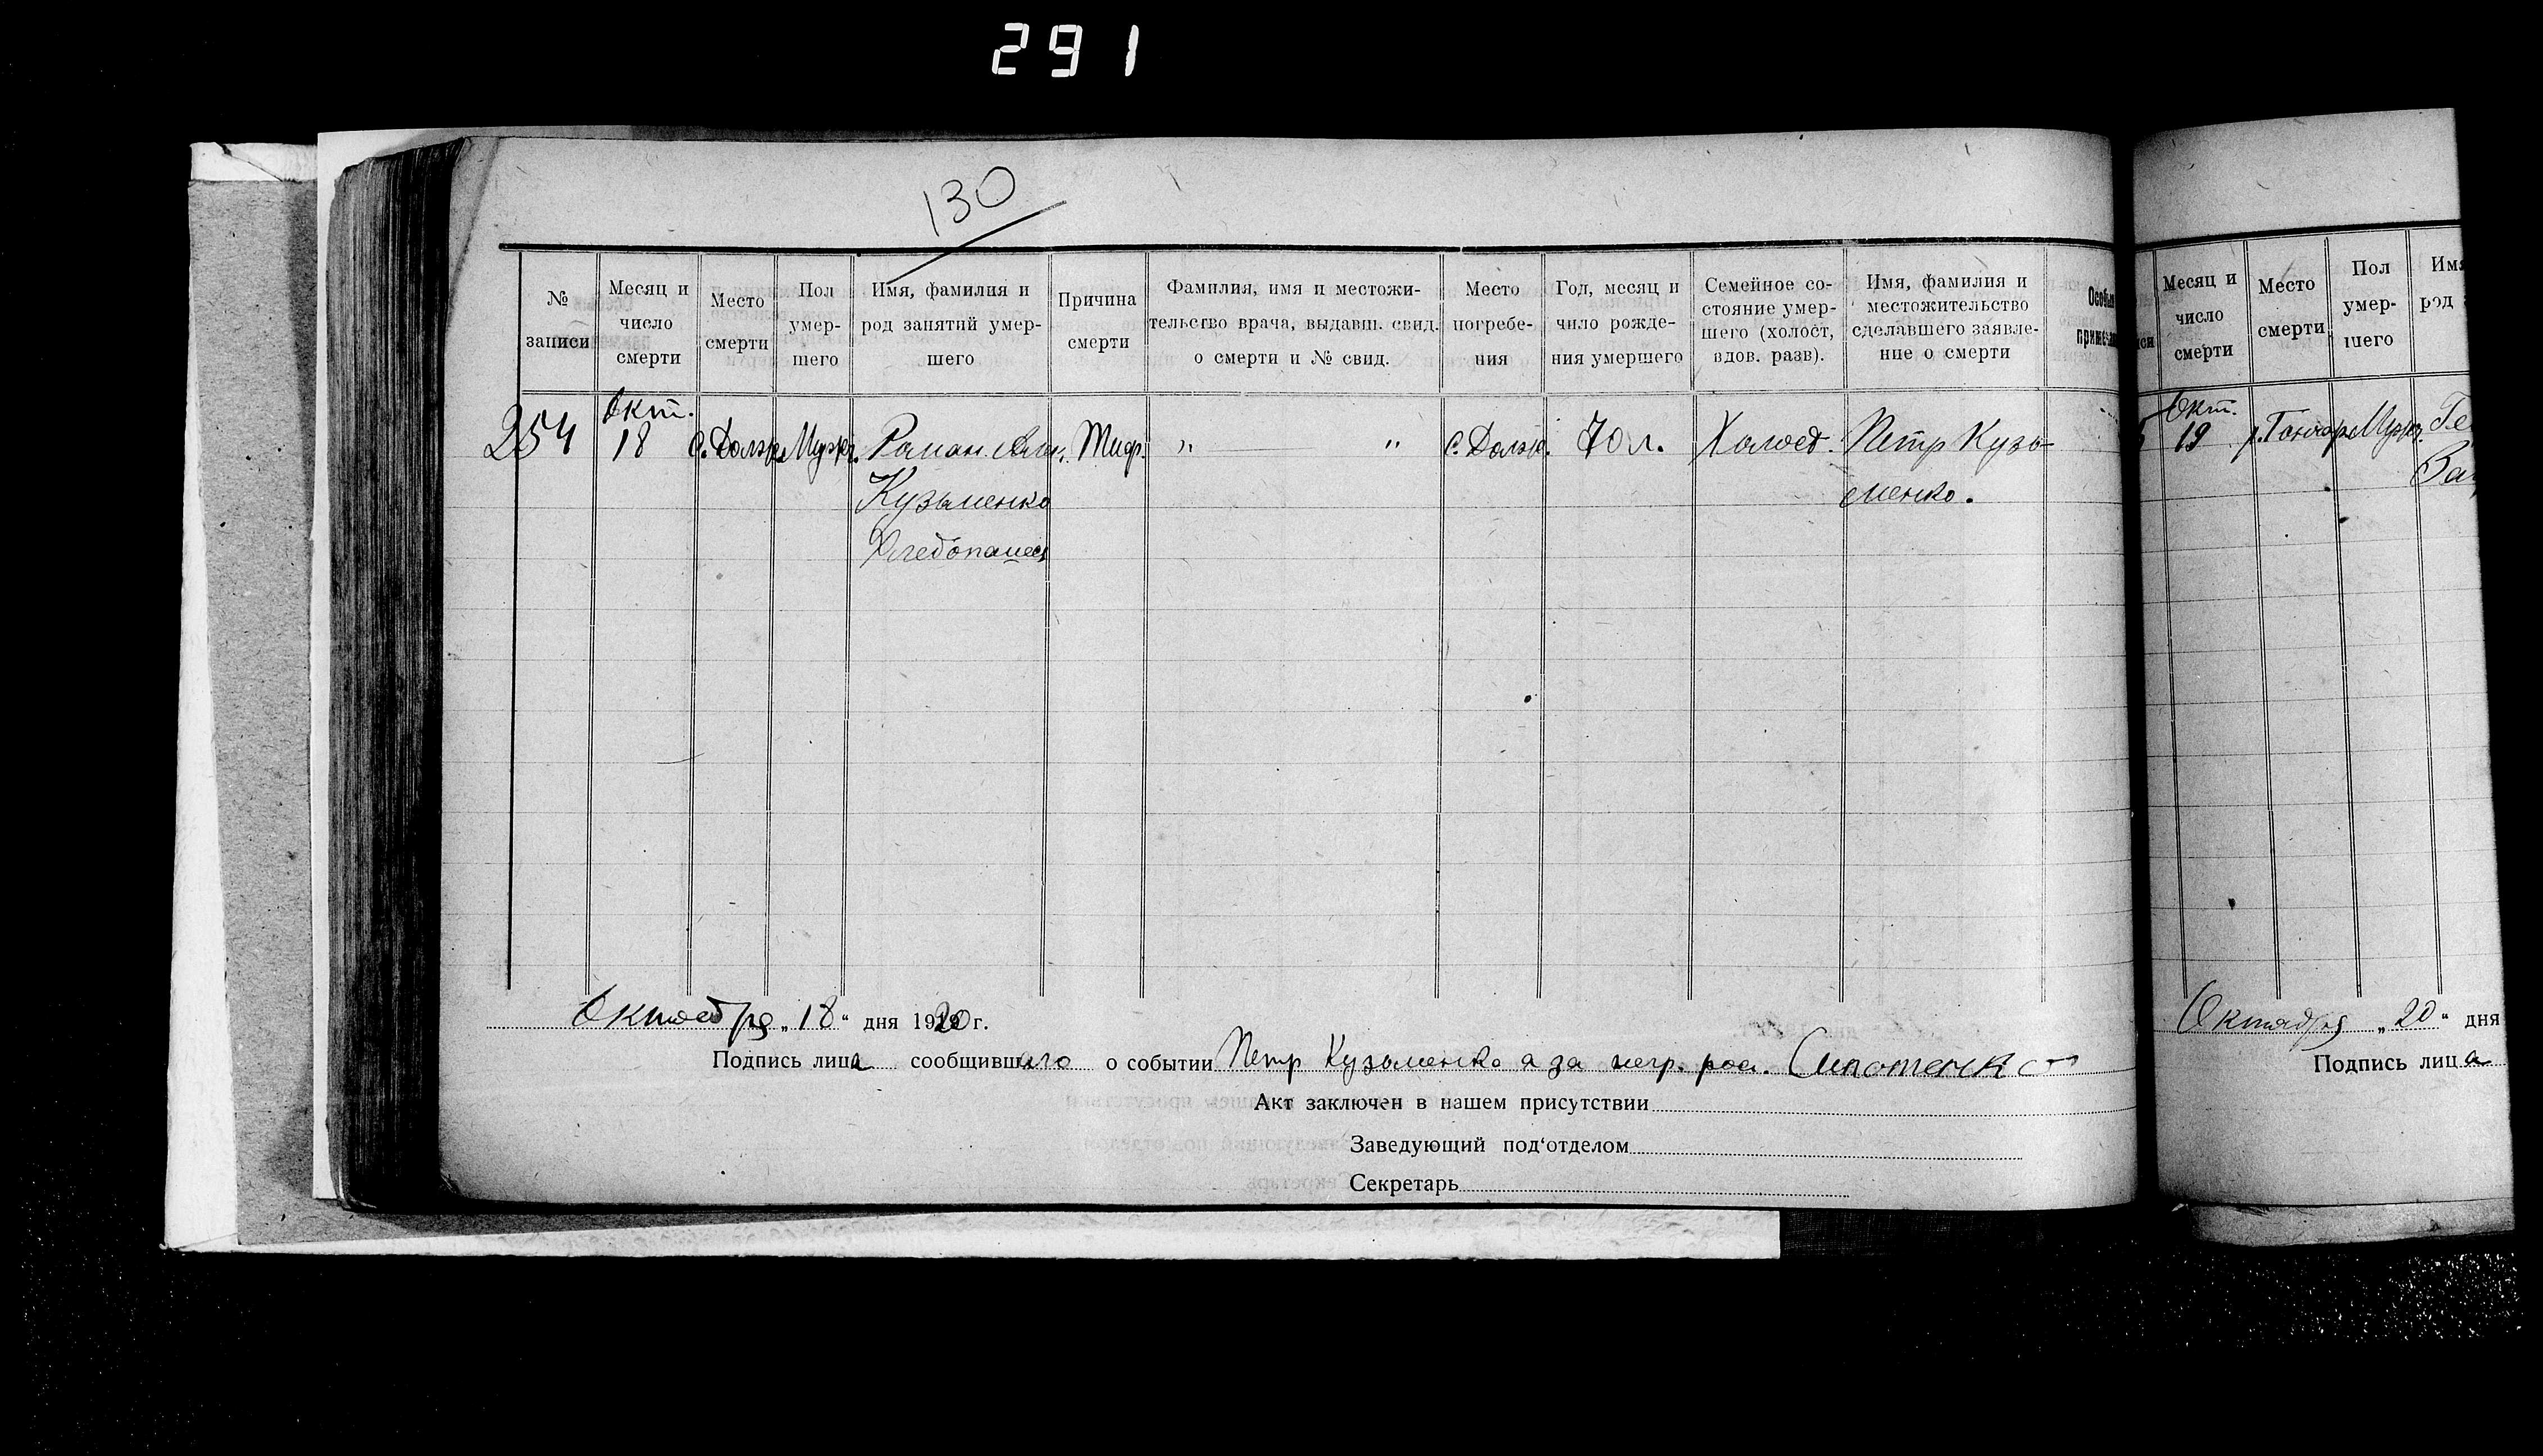 291
130
№ записи
Месяц и число смерти
Место смерти
Пол умер- шего
Имя, фамилия и род занятий умер- шего
Причина смерти
Фамилия, имя и местожи- тельство врача, выдавш. свид. о смерти и № свид.
Место погребе- ния
Год, месяц и число рожде- ния умершего
Семейное со- стояние умер- шего (холост, вдов. разв).
Имя, фамилия и местожительство сделавшего заявле- ние о смерти
254
Окт. 18
с. Долж.
Муж.
Роман
Кузьменко
Хлебопашец
Тиф.
" "
с. Долж.
70 л.
Холост.
Петр Кузь-
менко.
Октября „18“ дня 1920 г.
Подпись лица сообщившаго о событии Петр Кузьменко а за негр. рос.
Акт заключен в нашем присутствии
Заведующий под‘отделом
Секретарь
Месяц и число смерти
Место смерти
Пол умер- шего
Окт. 19
Муж.
Октября „20“ дня
Подпись лица